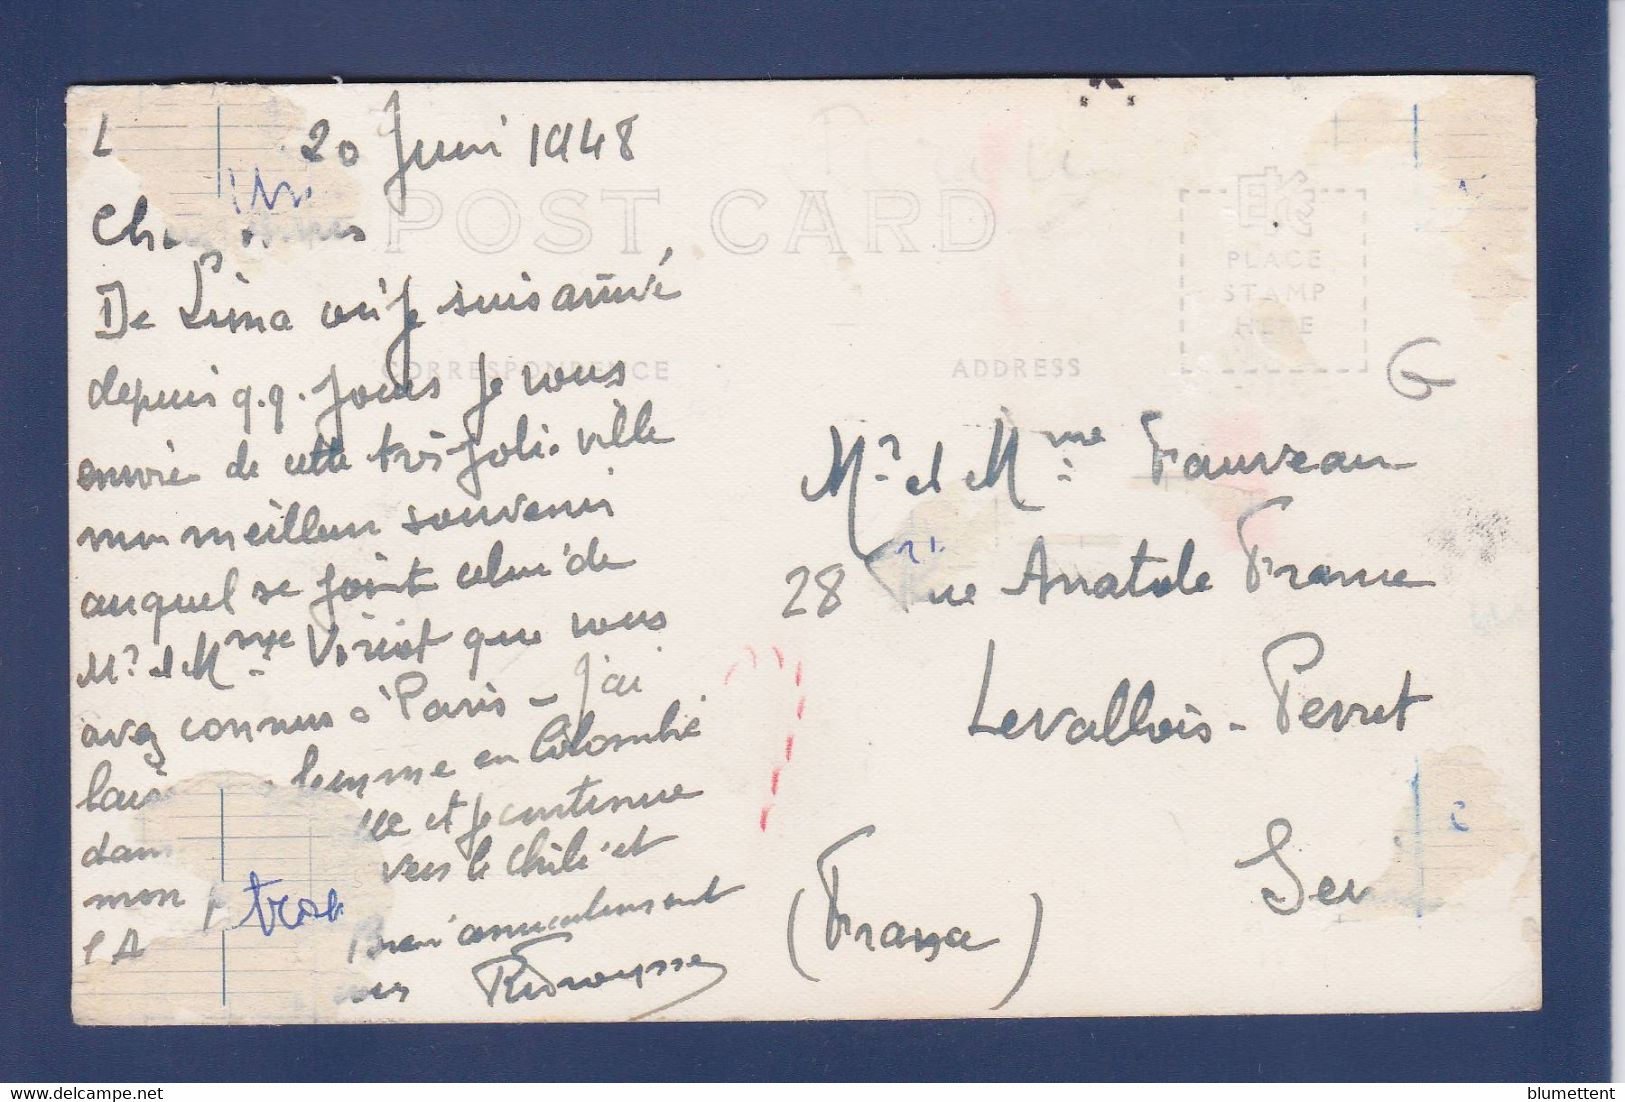 L 20 Juin 1948
POST CARD
De Lima où je suis arrivé
depuis q.q. jours je vous
envoie de cette très jolie ville
mon meilleur souvenir
auquel se joint celui de
Mr. et Mme Viriot que vous
avez connus à Paris - J'ai
femme en Colombie
et je continue
mon vers le Chili et
Bien amicalement
CORRESPONDENCE
ADDRESS
EKC
PLACE
STAMP
HERE
G
Mr. et Mme Fauveau
28 Rue Anatole France
Levallois-Perret
(France)
blumettent